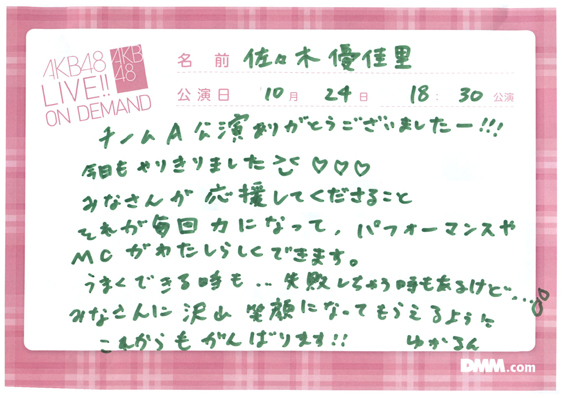 AKB48
LIVE!!
ON DEMAND
AKB
48
名前 佐々木優佳里
公演日 10月 24日 18:30公演
チームA公演ありがとうございましたー!!!
今日もやりきりました ♡♡♡
みなさんが応援してくださること
それが毎回力になって、パフォーマンスや
MCがわたしらしくできます。
うまくできる時も..失敗しちゃう時もあるけど...
みなさんに沢山笑顔になってもらえるように
これからもがんばります!! ゆかるん
DMM.com